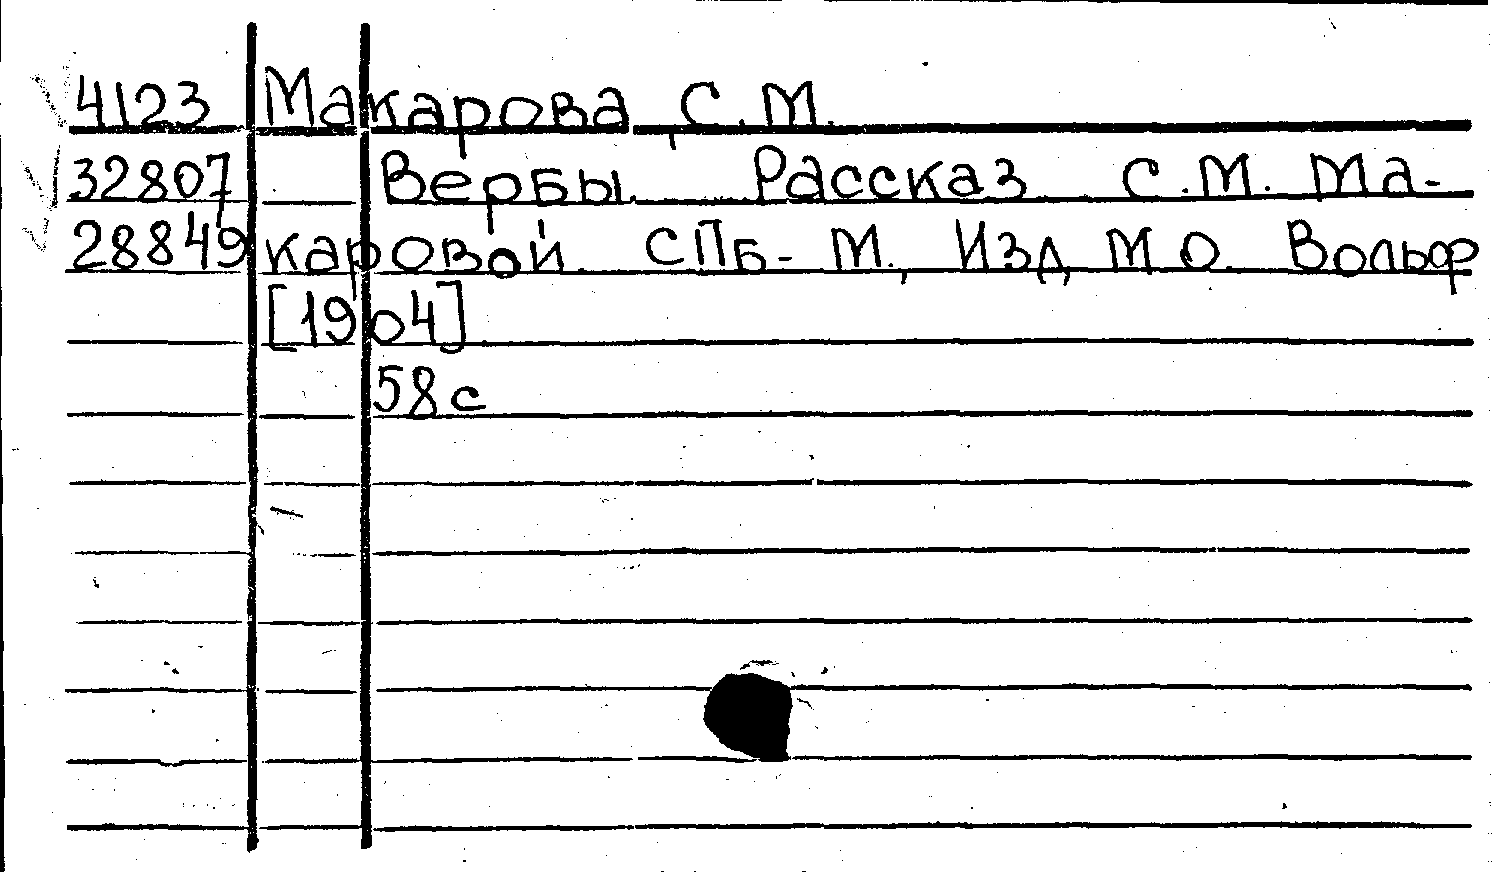 4123 Макарова, С.М.
32807 Вербы. Рассказ С.М. Ма-
28849 каровой. СПб.- М., Изд. М.О. Вольф
[1904]
58 с